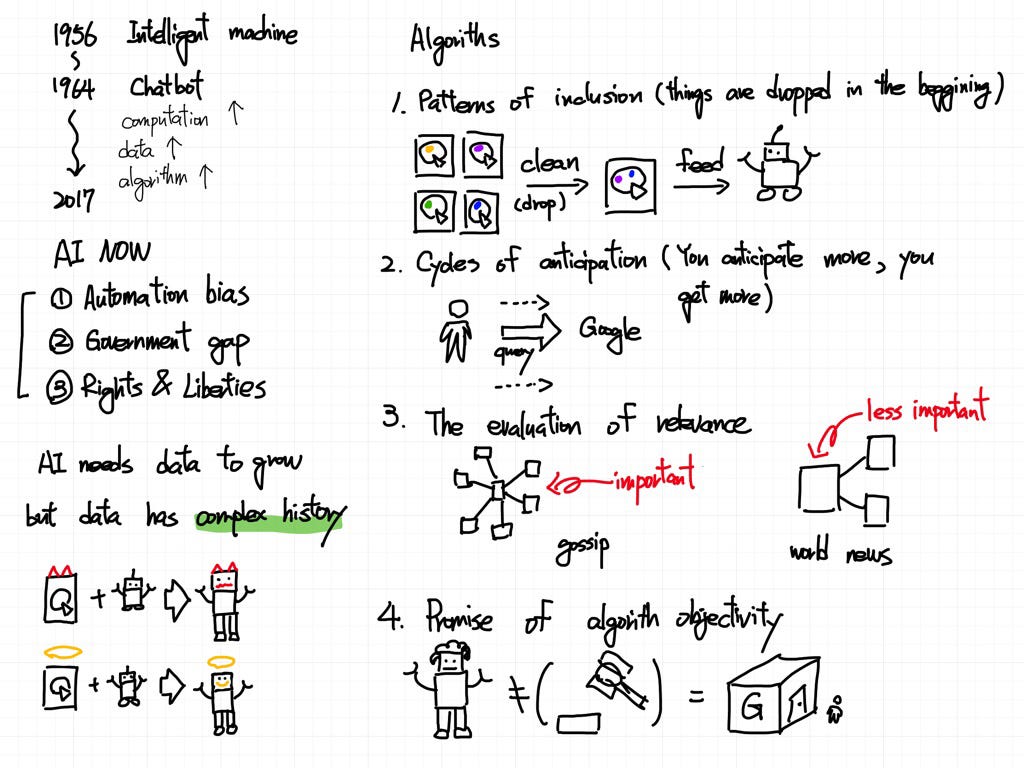 1956 Intelligent machine
1964 Chatbot
computation ↑
data ↑
algorithm ↑
2017
AI NOW
① Automation bias
② Government gap
③ Rights & Liberties
AI needs data to grow
but data has complex history
Algoriths
1. Patterns of inclusion (things are dropped in the beggining)
clean
(drop)
feed
2. Cycles of anticipation (You anticipate more, you
get more)
query
Google
3. The evaluation of relevance
important
gossip
less important
world news
4. Promise of algorith objectivity
≠ ( ) =
G